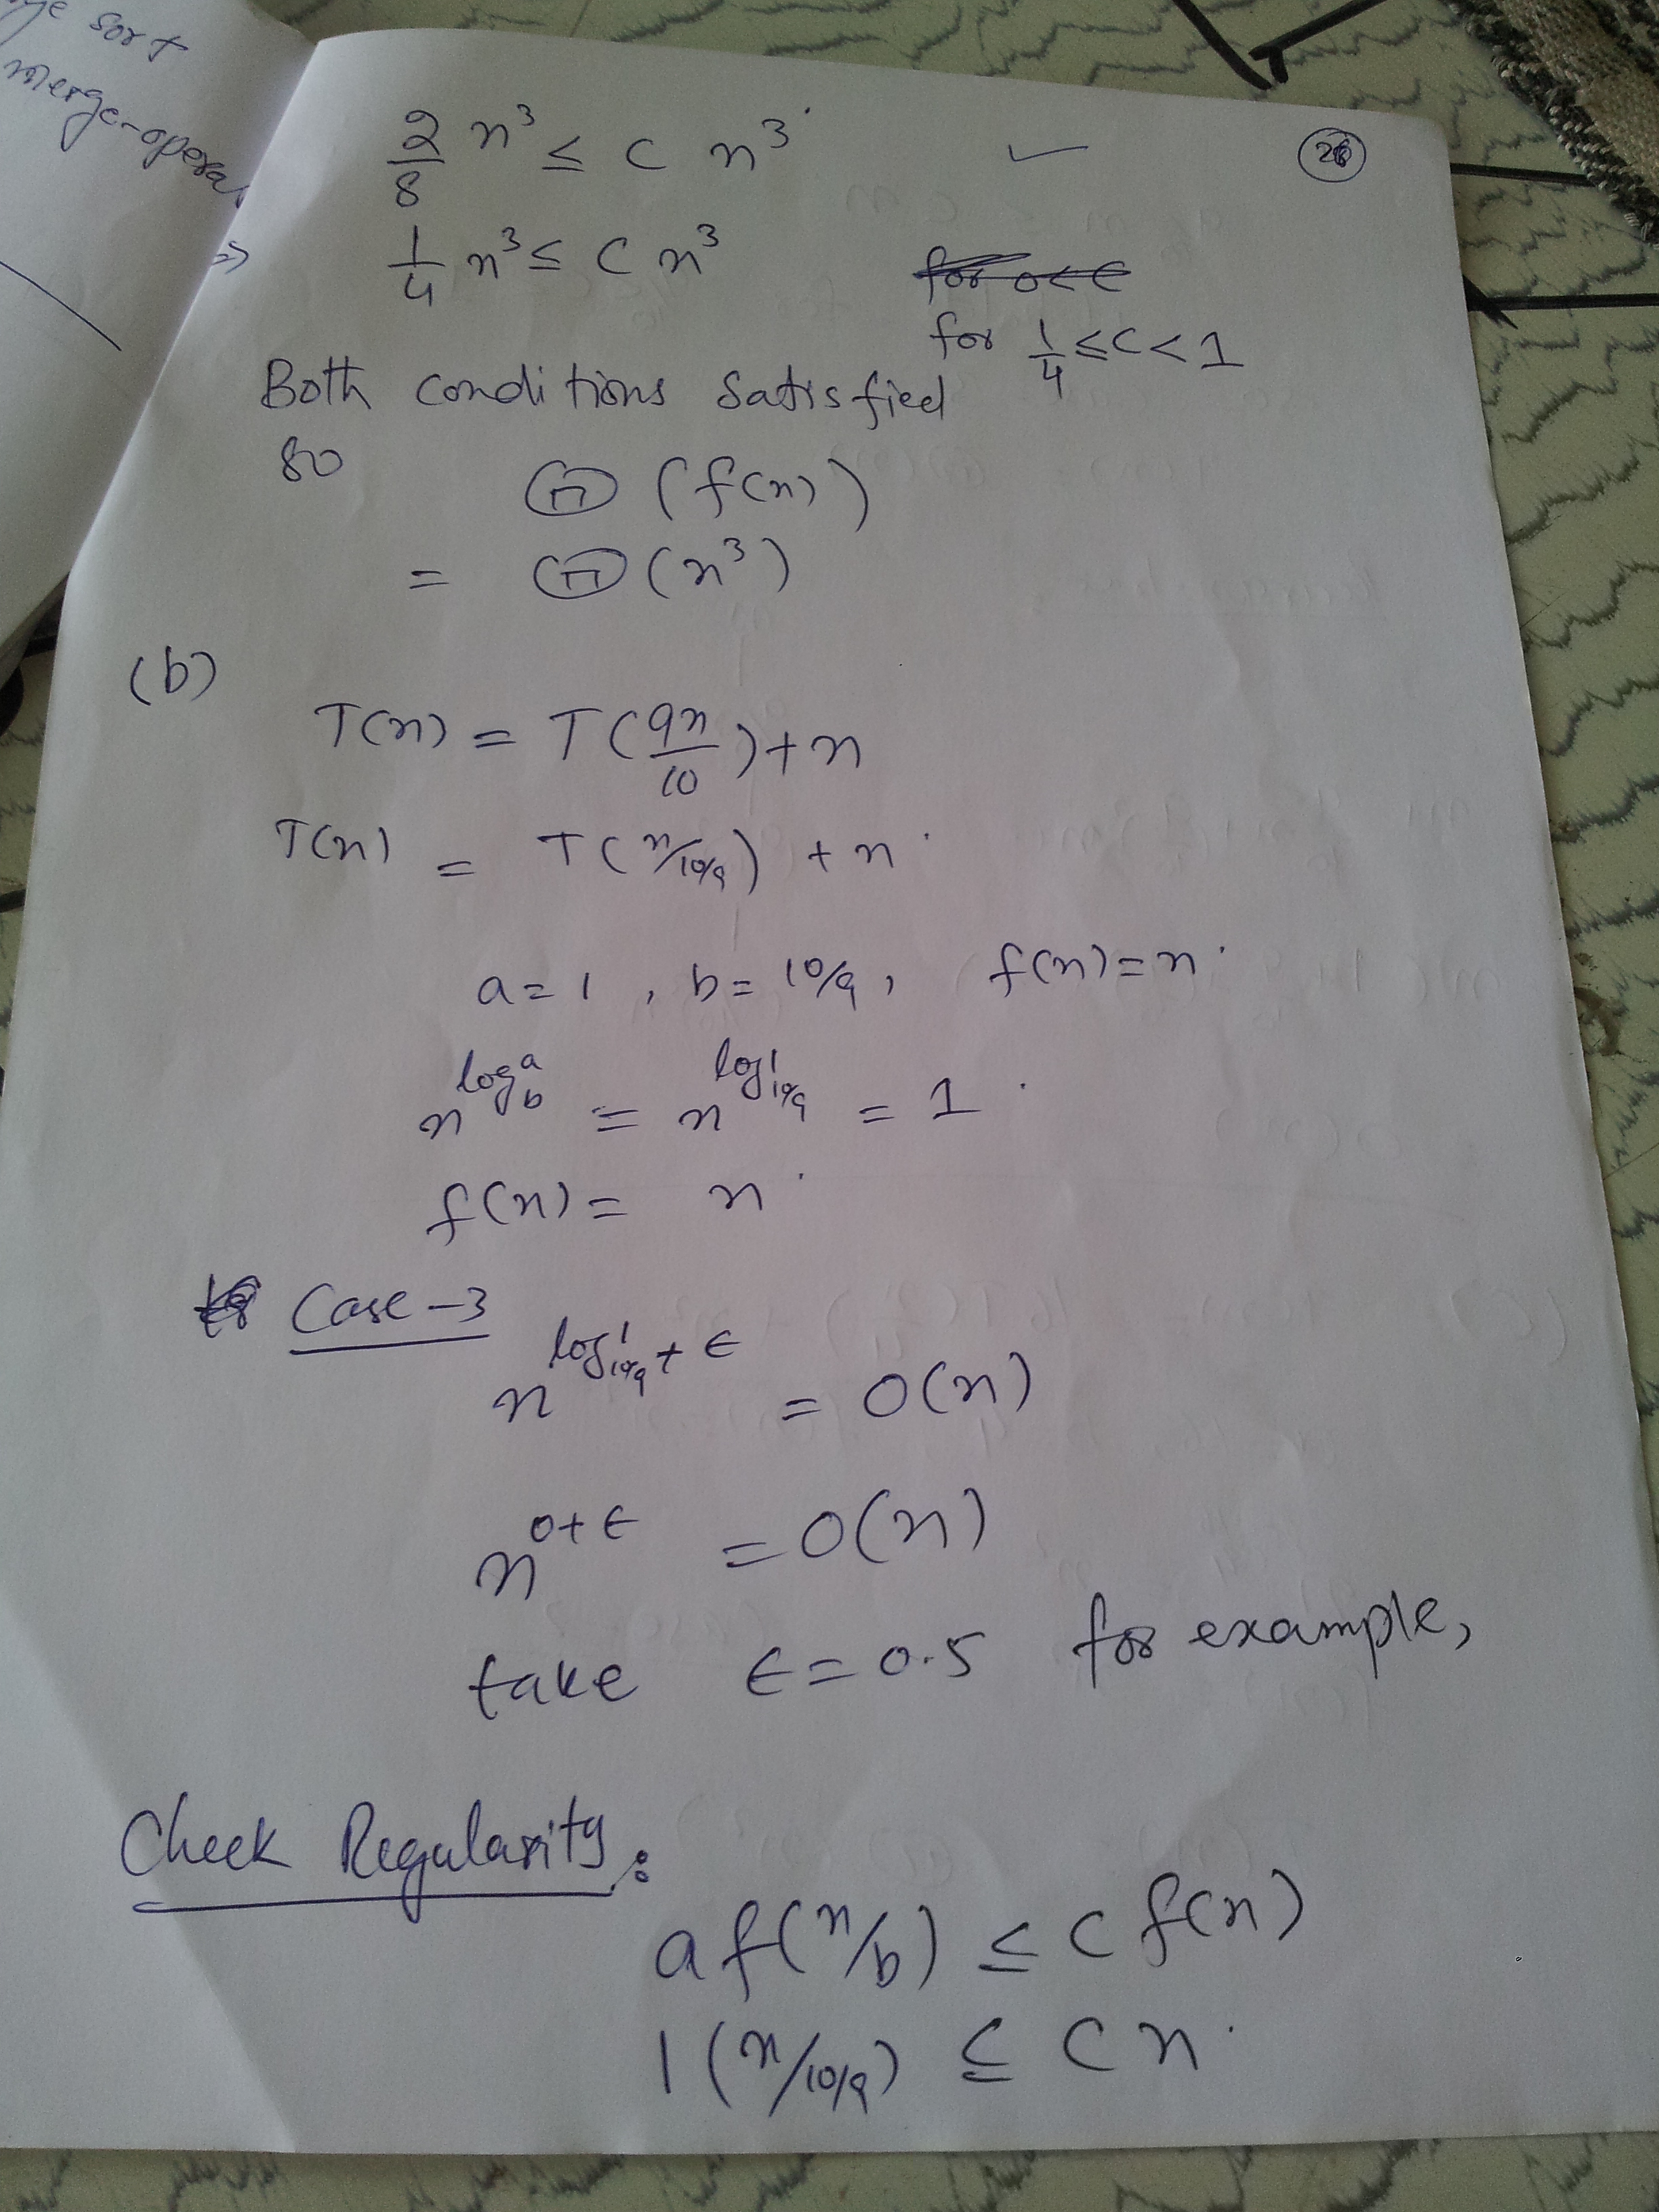 28
2/8 n³ ≤ c n³.
1/4 n³ ≤ c n³
for 1/4 ≤ c < 1
Both conditions satisfied
so
Ⓗ (f(n))
= Ⓗ (n³)
(b)
T(n) = T(9n/10) + n
T(n) = T(n/10/9) + n.
a = 1, b = 10/9, f(n) = n.
n^log_b^a = n^log_10/9^1 = 1.
f(n) = n.
Case-3
n^log_10/9^1 + ε = O(n)
n^0+ε = O(n)
take ε = 0.5 for example,
Check Regularity:
a f(n/b) ≤ c f(n)
1 (n/10/9) ≤ c n.
ge sort
merge-